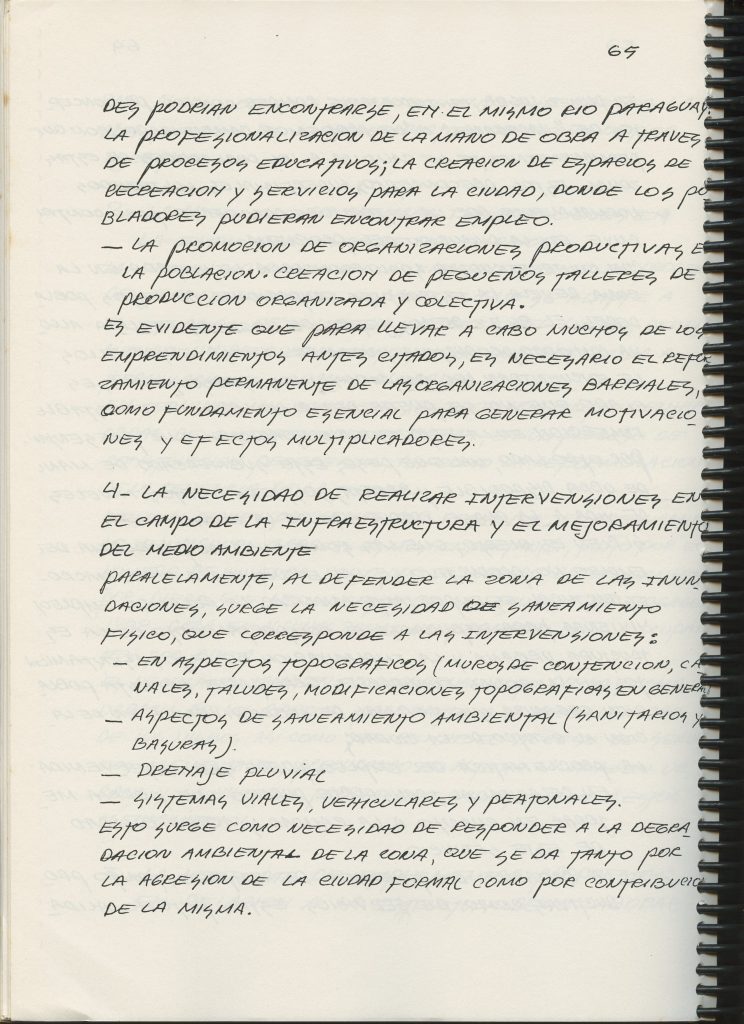 65
DES PODRIAN ENCONTRARSE, EN EL MISMO RIO PARAGUAY.
LA PROFESIONALIZACION DE LA MANO DE OBRA A TRAVES
DE PROCESOS EDUCATIVOS; LA CREACION DE ESPACIOS DE
RECREACION Y SERVICIOS PARA LA CIUDAD, DONDE LOS PO
BLADORES PUDIERAN ENCONTRAR EMPLEO.
— LA PROMOCION DE ORGANIZACIONES PRODUCTIVAS E
LA POBLACION. CREACION DE PEQUEÑOS TALLERES DE
PRODUCCION ORGANIZADA Y COLECTIVA.
ES EVIDENTE QUE PARA LLEVAR A CABO MUCHOS DE LOS
EMPRENDIMIENTOS ANTES CITADOS, ES NECESARIO EL REFOR
ZAMIENTO PERMANENTE DE LAS ORGANIZACIONES BARRIALES,
COMO FUNDAMENTO ESENCIAL PARA GENERAR MOTIVACIO
NES Y EFECTOS MULTIPLICADORES.
4- LA NECESIDAD DE REALIZAR INTERVENSIONES EN
EL CAMPO DE LA INFRAESTRUCTURA Y EL MEJORAMIENTO
DEL MEDIO AMBIENTE
PARALELAMENTE, AL DEFENDER LA ZONA DE LAS INUN
DACIONES, SURGE LA NECESIDAD DE SANEAMIENTO
FISICO, QUE CORRESPONDE A LAS INTERVENSIONES:
— EN ASPECTOS TOPOGRAFICOS (MUROS DE CONTENCION, CA
NALES, TALUDES, MODIFICACIONES TOPOGRAFICAS EN GENERAL
— ASPECTOS DE SANEAMIENTO AMBIENTAL (SANITARIOS Y
BASURAS).
— DRENAJE PLUVIAL
— SISTEMAS VIALES, VEHICULARES Y PEATONALES.
ESTO SURGE COMO NECESIDAD DE RESPONDER A LA DEGRA
DACION AMBIENTAL DE LA ZONA, QUE SE DA TANTO POR
LA AGRESION DE LA CIUDAD FORMAL COMO POR CONTRIBUCIO
DE LA MISMA.